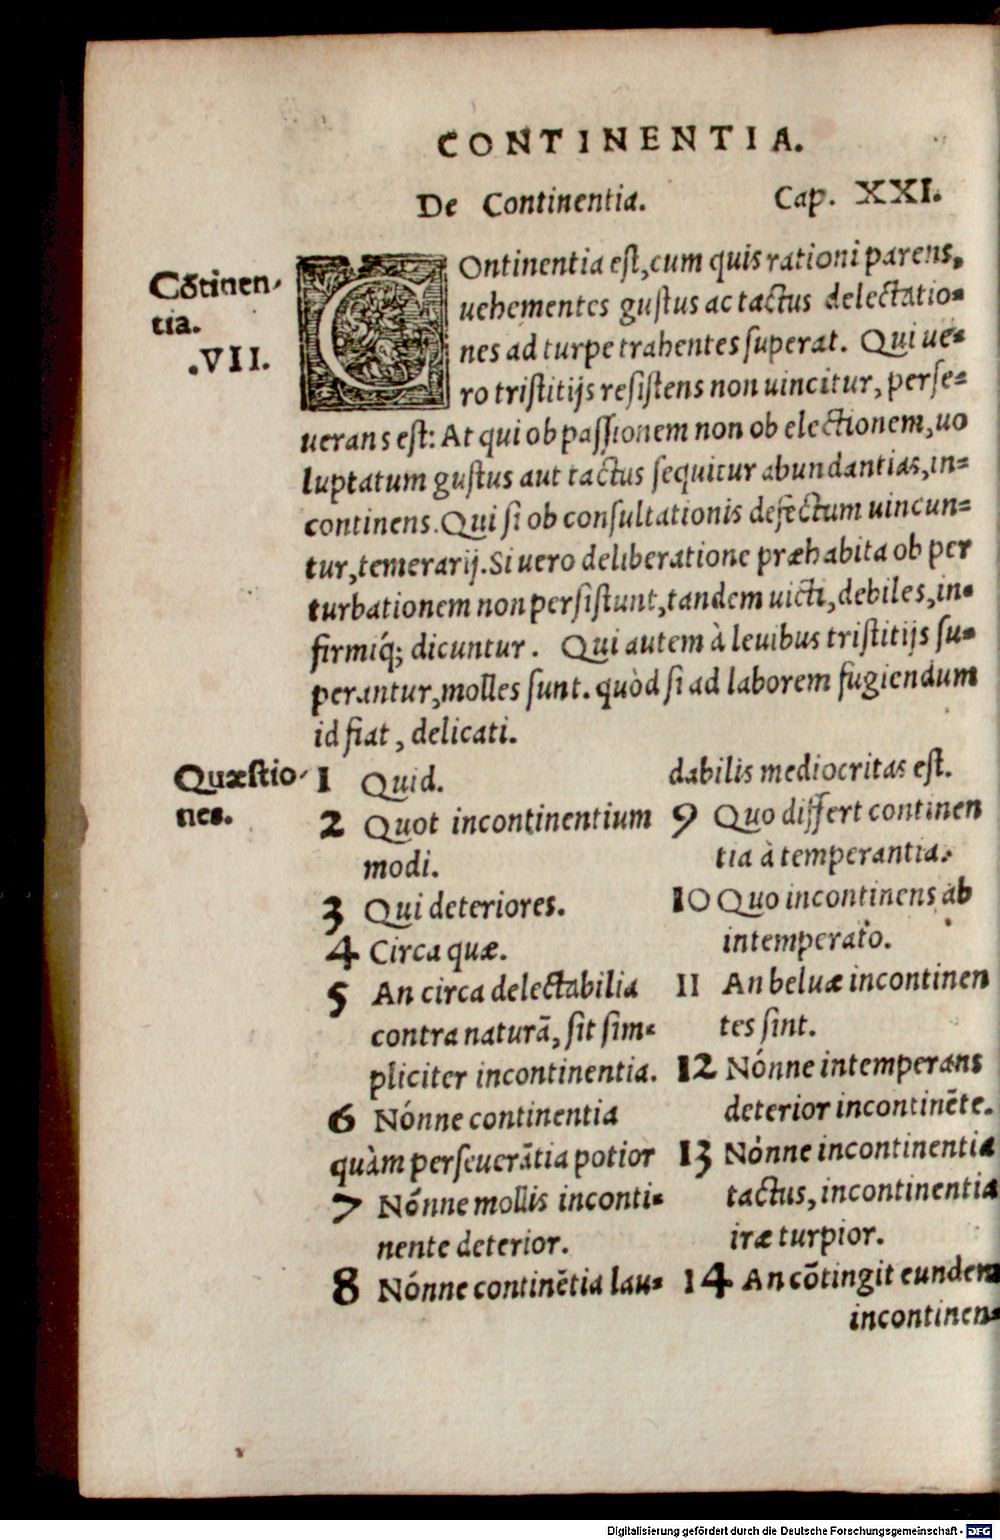 CONTINENTIA.
De Continentia. Cap. XXI.
Cõtinen-
tia.
.VII.
COntinentia est, cum quis rationi parens,
uehementes gustus ac tactus delectatio-
nes ad turpe trahentes superat. Qui ue-
ro tristitijs resistens non uincitur, perse-
uerans est: At qui ob passionem non ob electionem, uo
luptatum gustus aut tactus sequitur abundantias, in-
continens. Qui si ob consultationis defectum uincun-
tur, temerarij. Si uero deliberatione præhabita ob per
turbationem non persistunt, tandem uicti, debiles, in-
firmiq́; dicuntur. Qui autem à leuibus tristitijs su-
perantur, molles sunt. quòd si ad laborem fugiendum
id fiat, delicati.
Quæstio-
nes.
1 Quid.
2 Quot incontinentium
modi.
3 Qui deteriores.
4 Circa quæ.
5 An circa delectabilia
contra naturã, sit sim-
pliciter incontinentia.
6 Nónne continentia
quàm perseuerãtia potior
7 Nónne mollis inconti-
nente deterior.
8 Nónne continẽtia lau-
dabilis mediocritas est.
9 Quo differt continen
tia à temperantia.
10 Quo incontinens ab
intemperato.
11 An beluæ incontinen
tes sint.
12 Nónne intemperans
deterior incontinẽte.
13 Nónne incontinentia
tactus, incontinentia
iræ turpior.
14 An cõtingit eundem
incontinen-
Digitalisierung gefördert durch die Deutsche Forschungsgemeinschaft - DFG